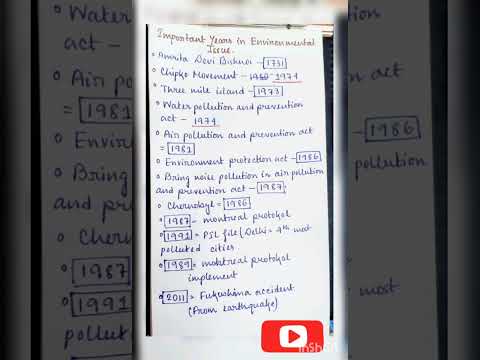 Important Years in Environmental
Issue.
Amrita Devi Bishnoi - 1731
Chipko Movement - 1974
Three mile island - 1973
Water pollution and prevention
act - 1974
Air pollution and prevention act
= 1981
Environment protection act - 1986
Bring noise pollution in air pollution
and prevention act - 1987.
Chernobyl = 1986
1987 - montreal protokol
1991 = PIL file (Delhi = 4th most
polluted cities.
1989 = montreal protokol
implement
2011 = Fukushima accident
(From earthquake)
InShot